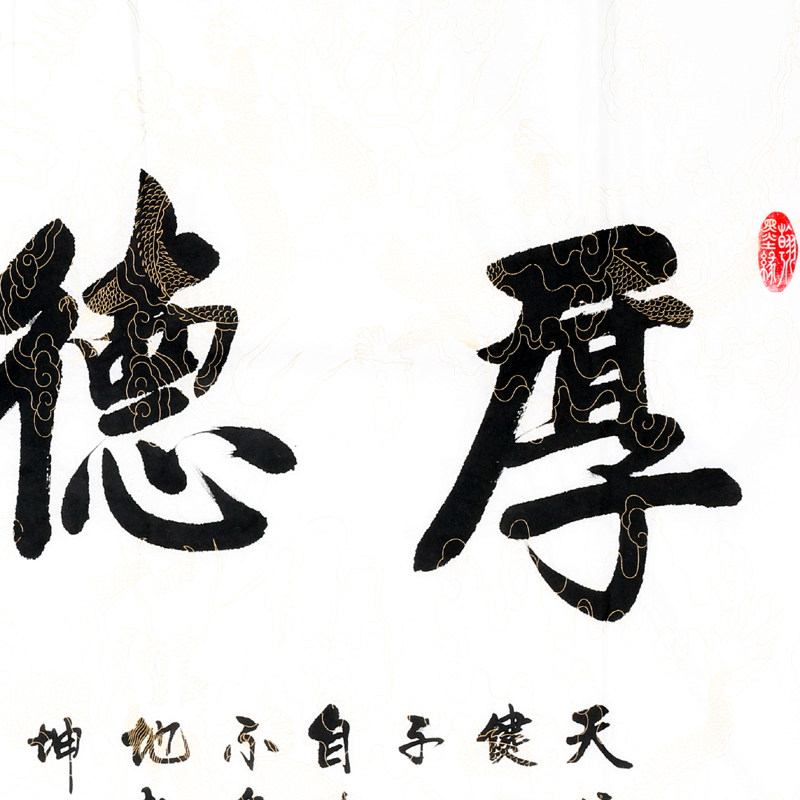 厚德
天健子自不地坤